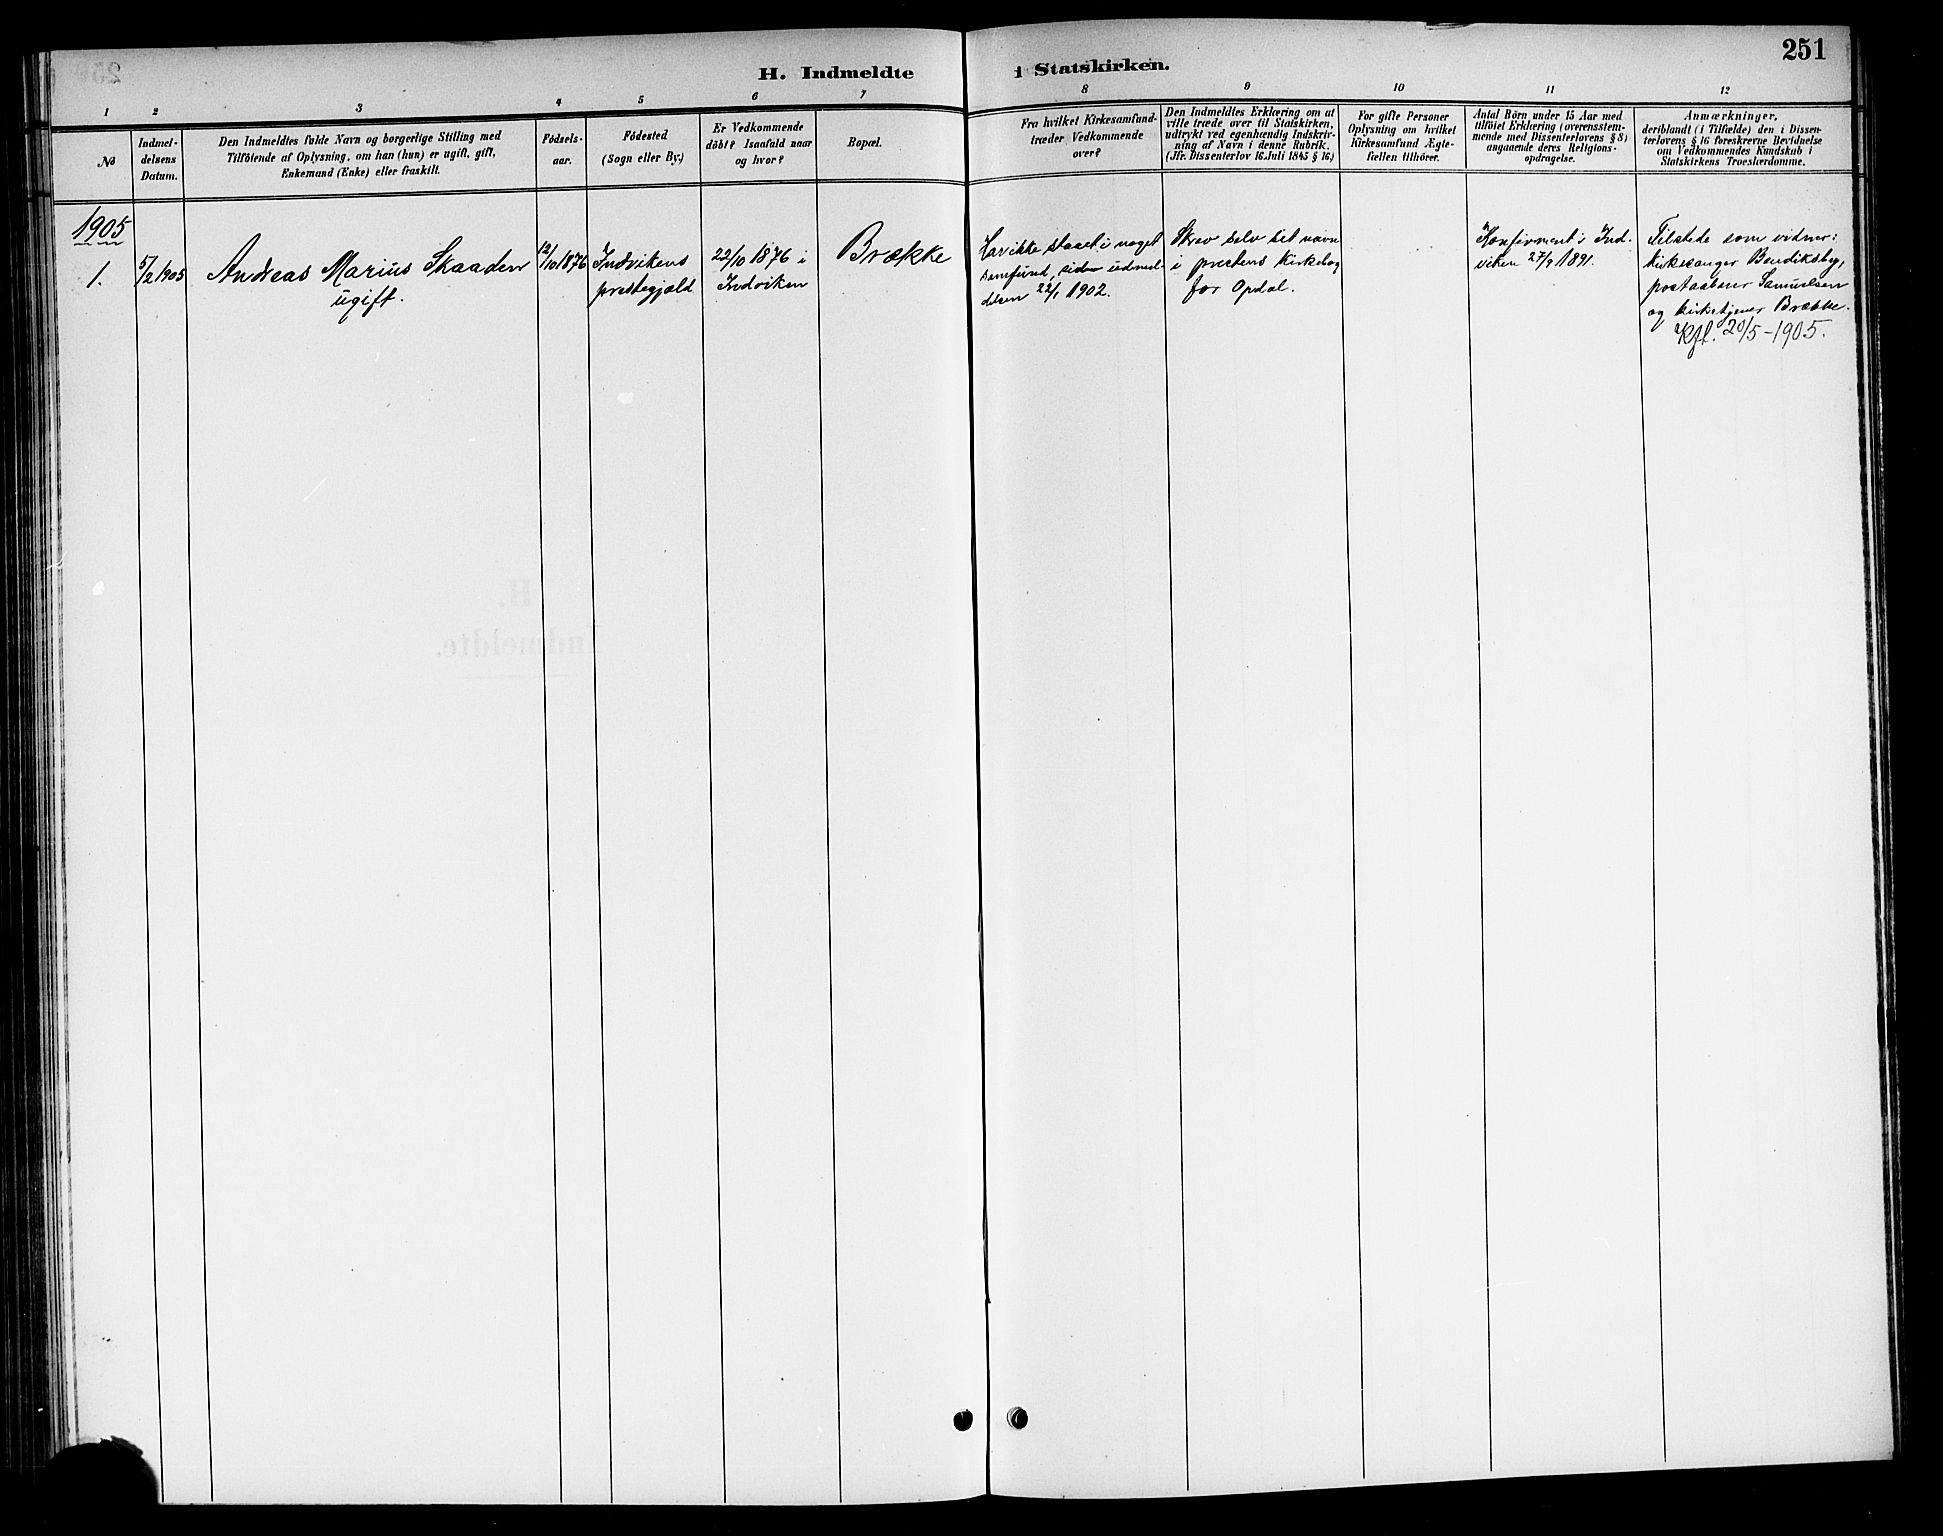 251
H. Indmeldte i Statskirken.
1 2 3 4 5 6 7 8 9 10 11 12
No
Indmel-
delsens
Datum.
Den Indmeldtes fulde Navn og borgerlige Stilling med
Tilföiende af Oplysning, om han (hun) er ugift, gift,
Enkemand (Enke) eller fraskilt.
Födsels-
aar.
Födested
(Sogn eller By.)
Er Vedkommende
döbt? Isaafald naar
og hvor?
Bopæl.
Fra hvilket Kirkesamfund
træder Vedkommende
over?
Den Indmeldtes Erklæring om at
ville træde over til Statskirken,
udtrykt ved egenhændig Indskriv-
ning af Navn i denne Rubrik.
(Jfr. Dissenterlov 16 Juli 1845 § 16.)
For gifte Personer
Oplysning om hvilket
Kirkesamfund Ægte-
fællen tilhörer.
Antal Börn under 15 Aar med
tilföiet Erklæring (overensstem-
mende med Dissenterlovens § 8)
angaaende deres Religions-
opdragelse.
Anmærkninger,
deriblandt (i Tilfælde) den i Dissen-
terlovens § 16 foreskrevne Bevidnelse
om Vedkommendes Kundskab i
Statskirkens Troeslærdomme.
1905
1.
5/2 1905
Andreas Marius Skaaden
ugift.
12/10 1876
Indvikens
prestegjæld
22/10 1876 i
Indviken
Brække
Har ikke staaet i noget
samfund, siden udmel-
delsen 22/1 1902.
Skrev selv sit navn
i prestens kirkebog
for Opdal.
Konfirment i Ind-
viken 27/9 1891.
Tilstede som vidner:
kirkesanger Bendiksby,
postaabner Samuelsen
og kirketjener Brække.
Kfl. 20/5-1905.
H.
Indmeldte.